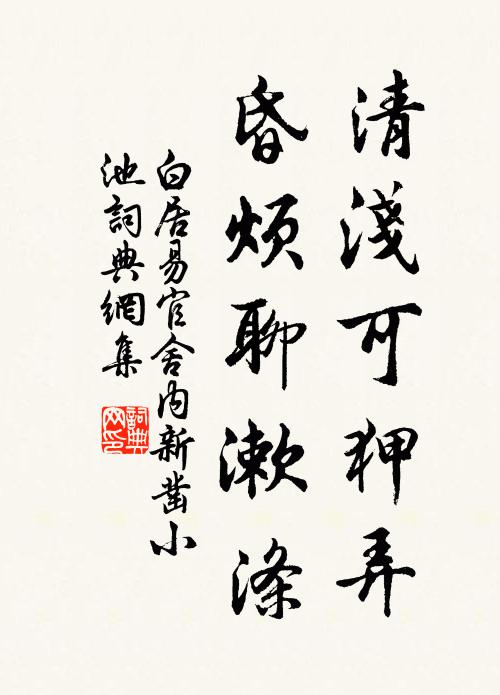 清淺可狎弄
昏煩聊漱滌
白居易官舍內新鑿小
池詞典網集
詞典
网印